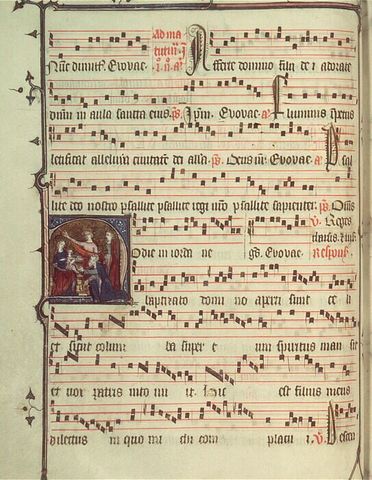 Nunc dimitt. Evovae. ad ma
tuti
Afferte domino filii dei adorate
dnm in aula sancta eius. ps. Evovae. a. Fluminis
letificat alleluia civitatem dei alla. ps. Deus Evovae. a. Psal
lite deo nostro psallite psallite regi nro psallite sapienter. ps.
v. Reges
Hodie in iorda ne Evovae. Respons.
baptizato domino aperti sunt ce li
et sicut colum ba super e um spiritus man sit
et vox patris into nu it. Hic est filius meus
dilectus in quo mi chi com placu i. v. Descen